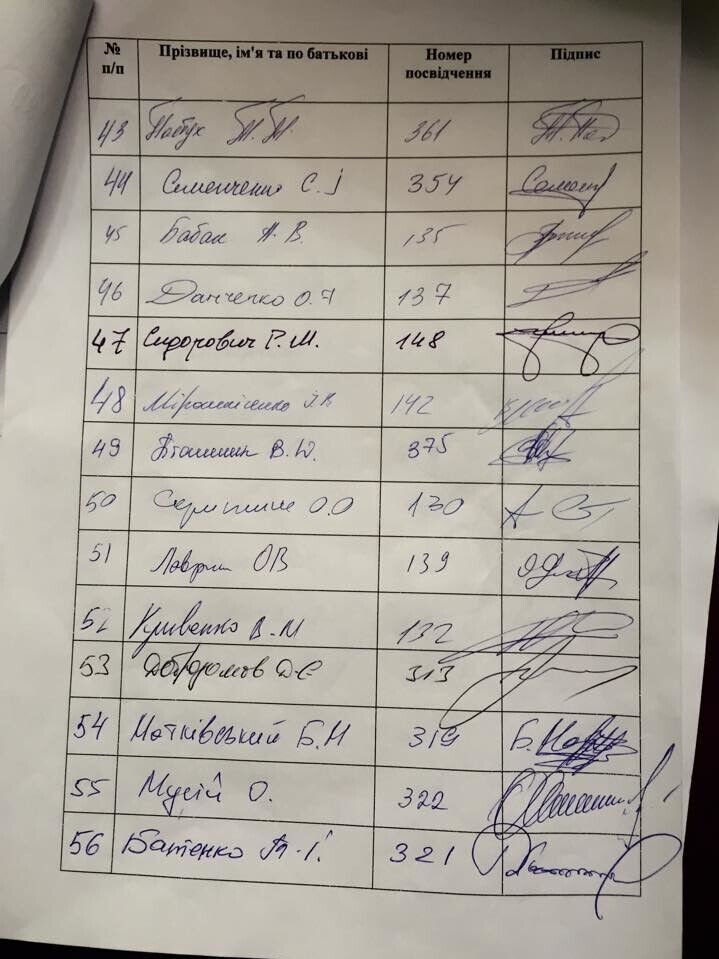 № п/п Прізвище, ім'я та по батькові Номер посвідчення Підпис
43 361
44 Семенченко С. 354
45 Бабак А. В. 135
46 Данченко О. І 137
47 Сидорович Р. М. 148
48 Мірошніченко І. В 142
49 Пташник В. Ю. 375
50 О. О 130
51 ОВ 139
52 Кривенко В. М 132
53 Добродомов Д Є 313
54 Матківський Б. М 319
55 Мусій О. 322
56 Батенко Т. І. 321